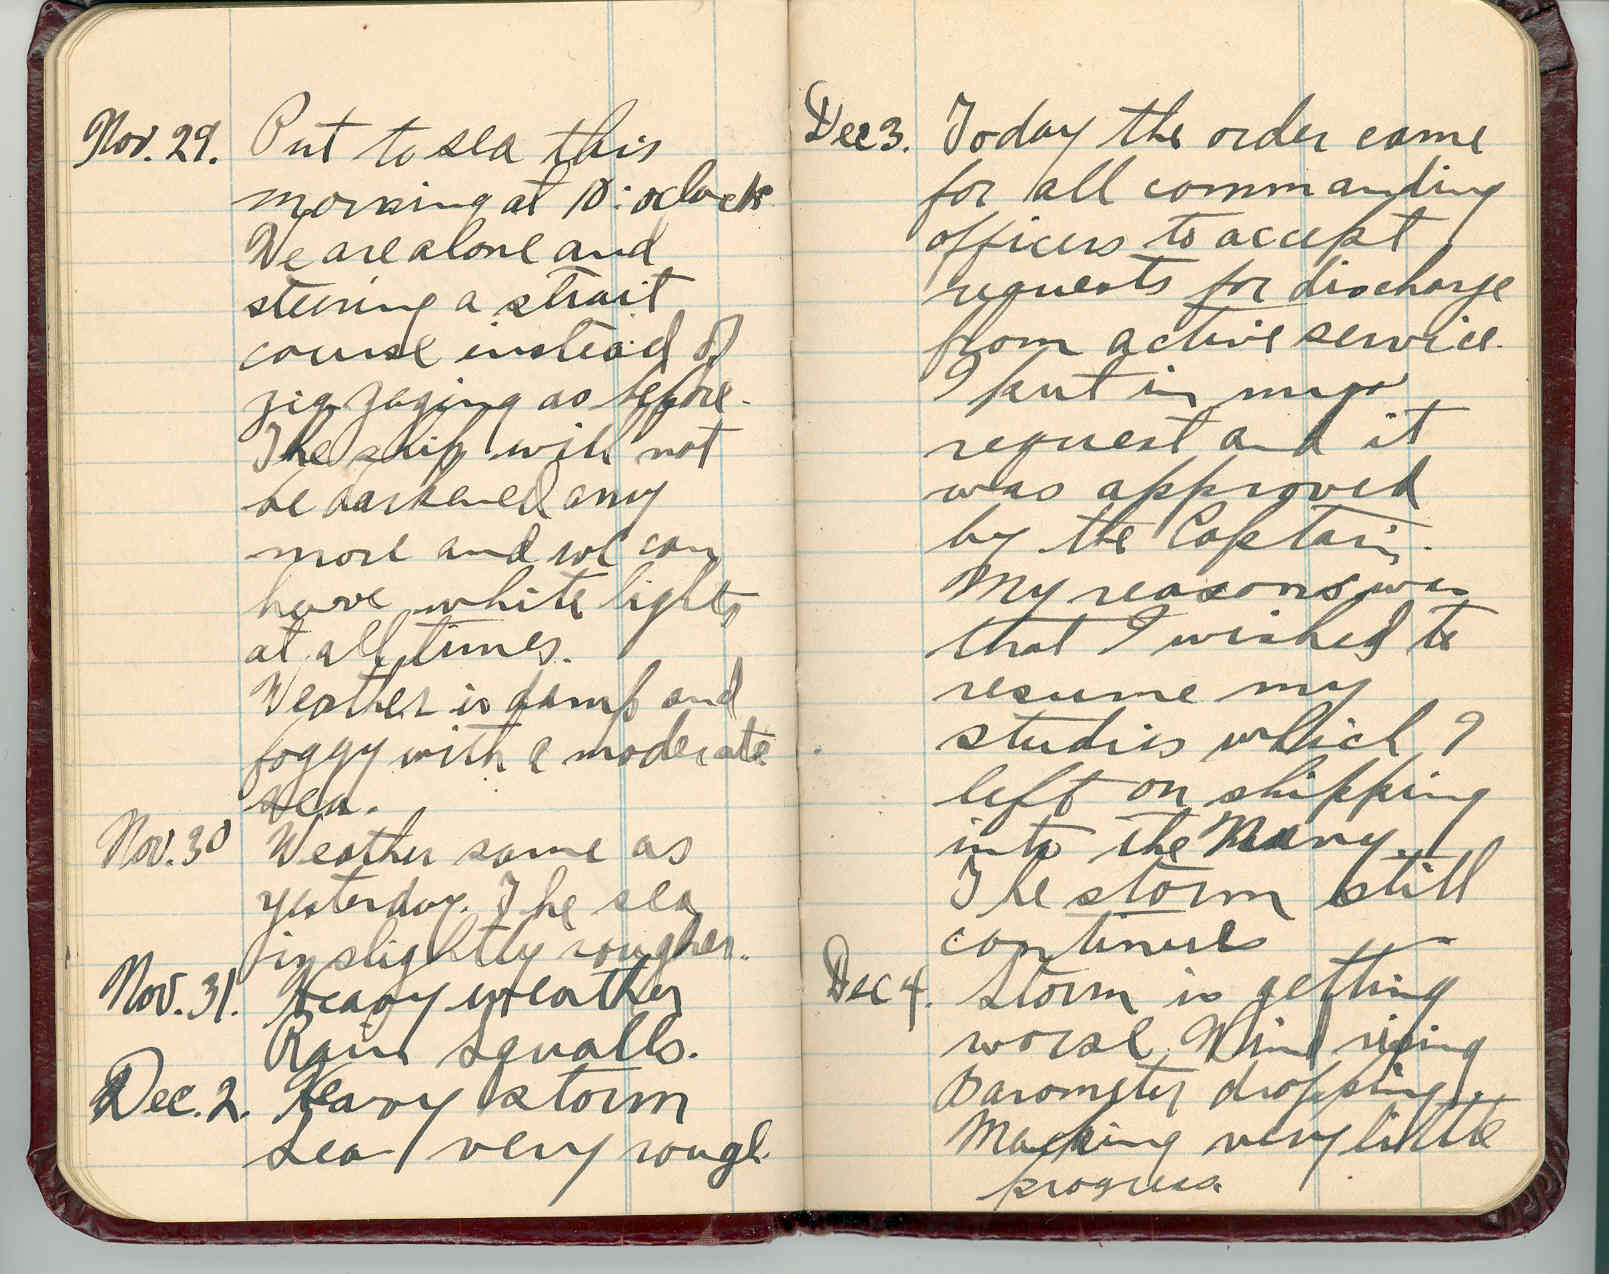 Nov. 29. Put to sea this
morning at 10: oclock
We are alone and
steering a strait
course instead of
zig zaging as before.
The ship will not
be darkened any
more and we can
have white lights
at all times.
Weather is damp and
foggy with a moderate
sea.
Nov. 30 Weather same as
yesterday. The sea
is slightly rougher.
Nov. 31. Heavy weather
Rain squalls.
Dec. 2. Heavy storm
sea very rough
Dec 3. Today the order came
for all commanding
officers to accept
requests for discharge
from active service.
I put in my
request and it
was approved
by the Captain.
My reasons was
that I wished to
resume my
studies which I
left on shipping
into the Navy.
The storm still
continues
Dec 4. Storm is getting
worse. Wind rising
Barometer dropping.
Making very little
progress.